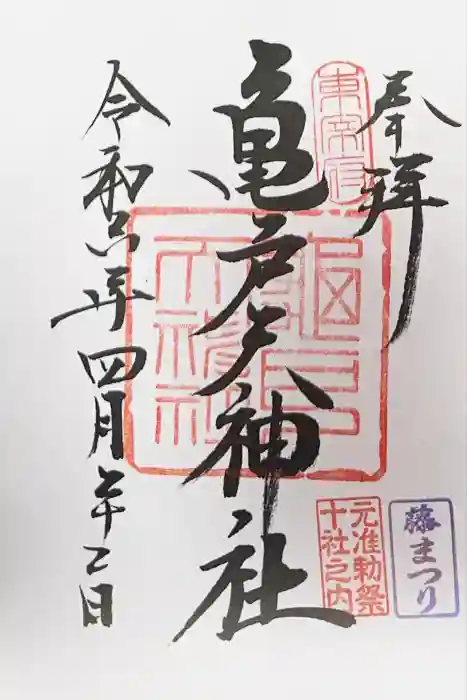 奉拝
東宰府
亀戸天神社
令和六年四月廿二日
龜戸
天神社
元准勅祭
十社之内
藤まつり